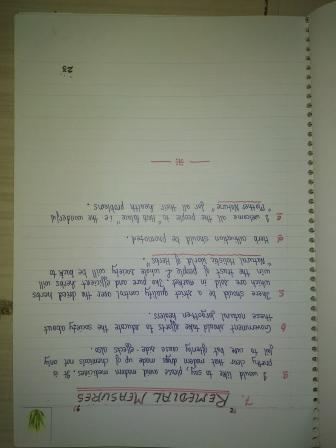 7. REMEDIAL MEASURES
a I would like to say, please avoid modern medicines. It is
pretty clear that modern drugs made up of chemicals not only
fail to cure but offering cause side-effects also.
b Government should take efforts to educate the society about
these natural forgotten healers.
c There should be a strict quality control over the dried herbs
which are sold in market. The pure and efficient herbs will
win the trust of people & whole society will be back to
"Natural Holistic World of Herbs".
d Herb cultivation should be promoted.
e I welcome all the people to "Herb Nature" i.e. the wonderful
"Mother Nature" for all their health problems.
23